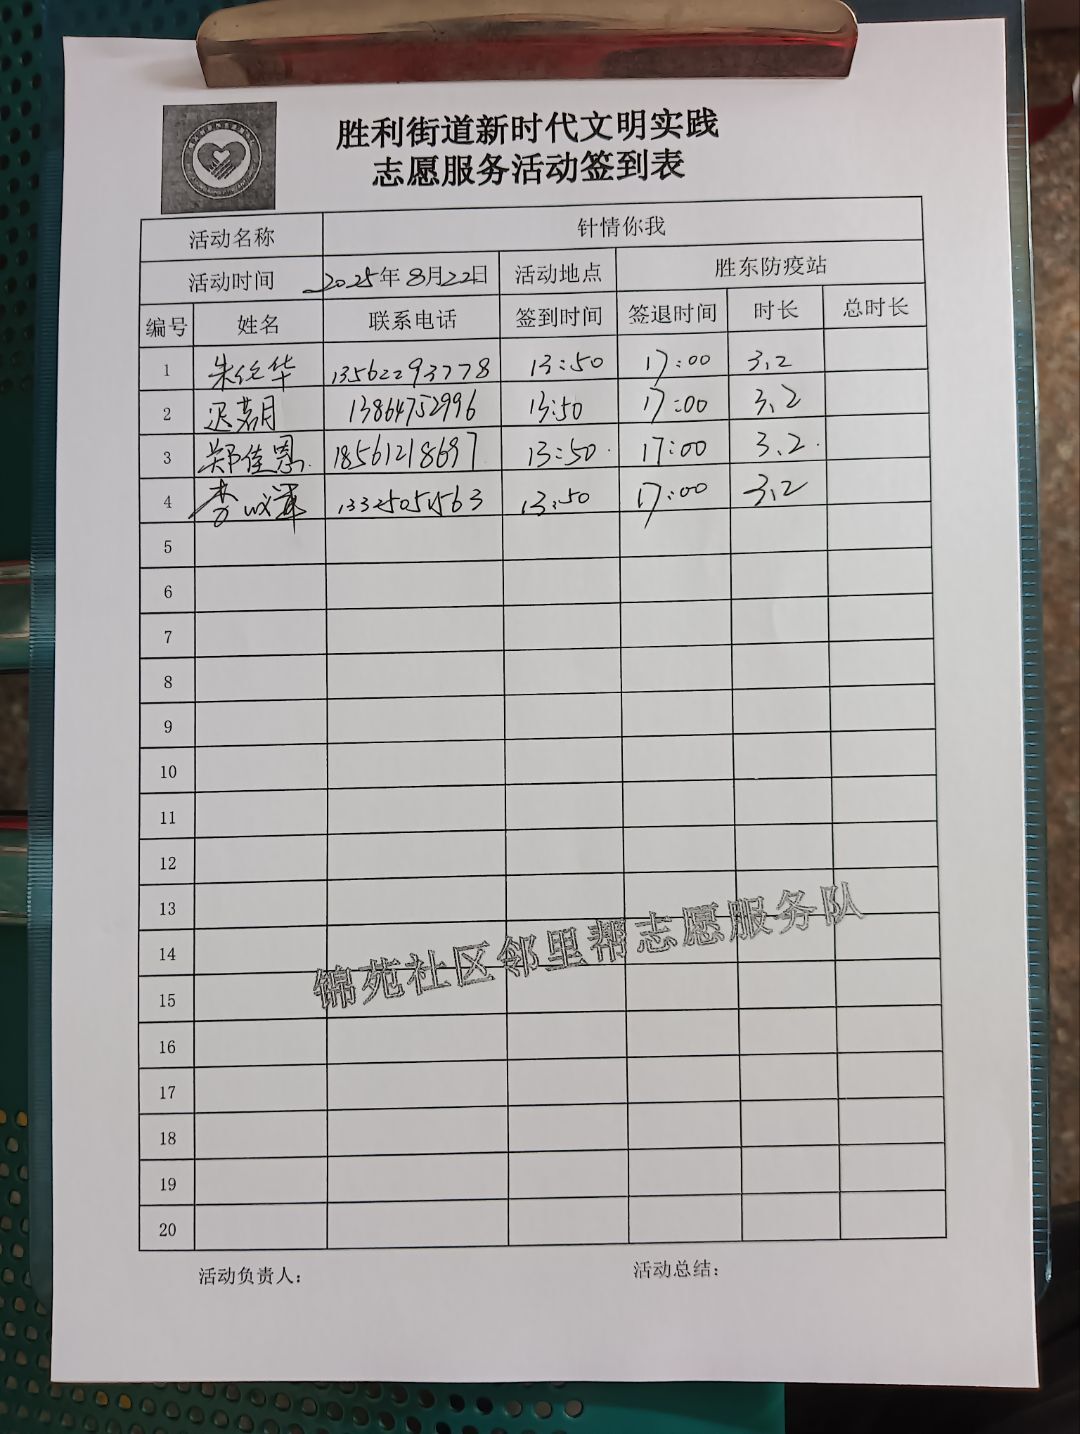 胜利街道新时代文明实践
志愿服务活动签到表
活动名称 针情你我
活动时间 2025年8月22日 活动地点 胜东防疫站
编号 姓名 联系电话 签到时间 签退时间 时长 总时长
1 朱华 13562293778 13:50 17:00 3.2
2 迟茗月 13864752996 13:50 17:00 3.2
3 郑佳恩 18561218697 13:50 17:00 3.2
4 李 13:50 17:00 3.2
5
6
7
8
9
10
11
12
13
14
15
16
17
18
19
20
锦苑社区邻里帮志愿服务队
活动负责人： 活动总结：